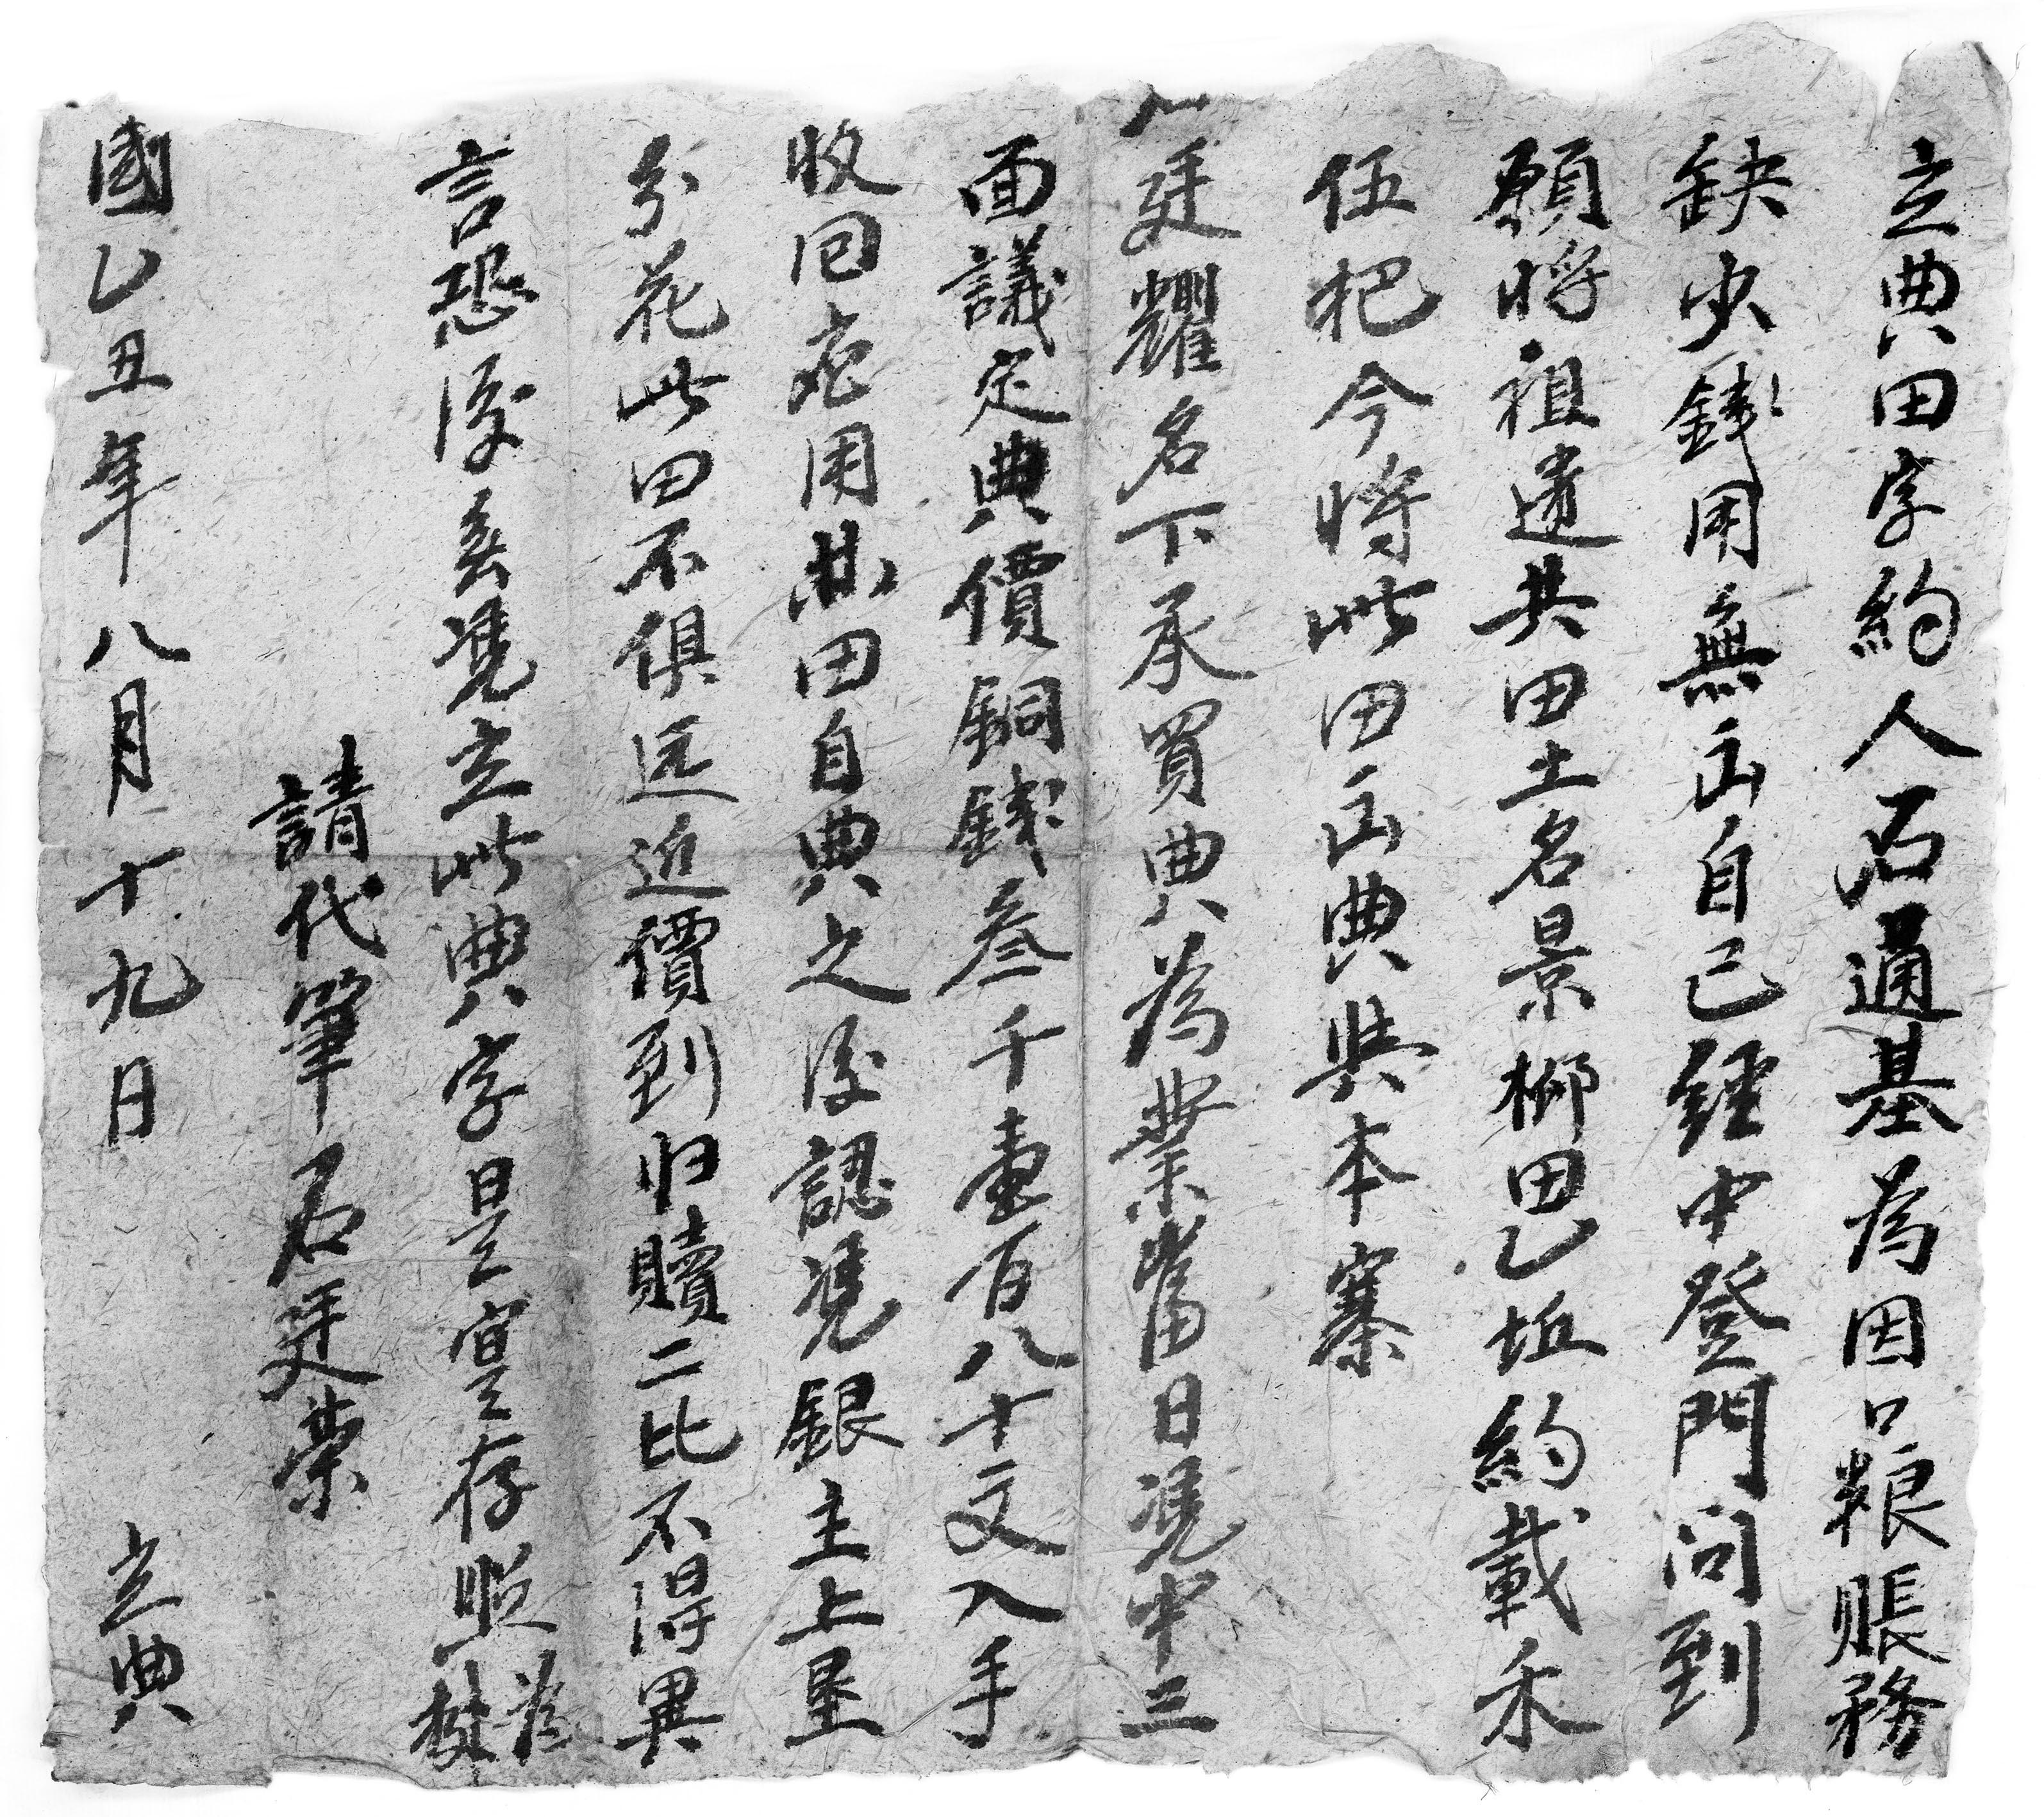 立典田字約人石通基為因口粮賬務
缺少錢用無出自己經中登門问到
願将祖遗共田土名景榔田乙坵約載禾
伍把今将此田出典與本寨
廷耀名下承買典為業當日凴中三
面議定典價銅錢叁千壹百八十文入手
收回應用其田自典之後認凴銀主上㘿
分花此田不俱远近價到归贖二比不得異
言恐後無凴立此典字是寔存照為據
請代筆石廷榮
國乙丑年八月十九日 立典